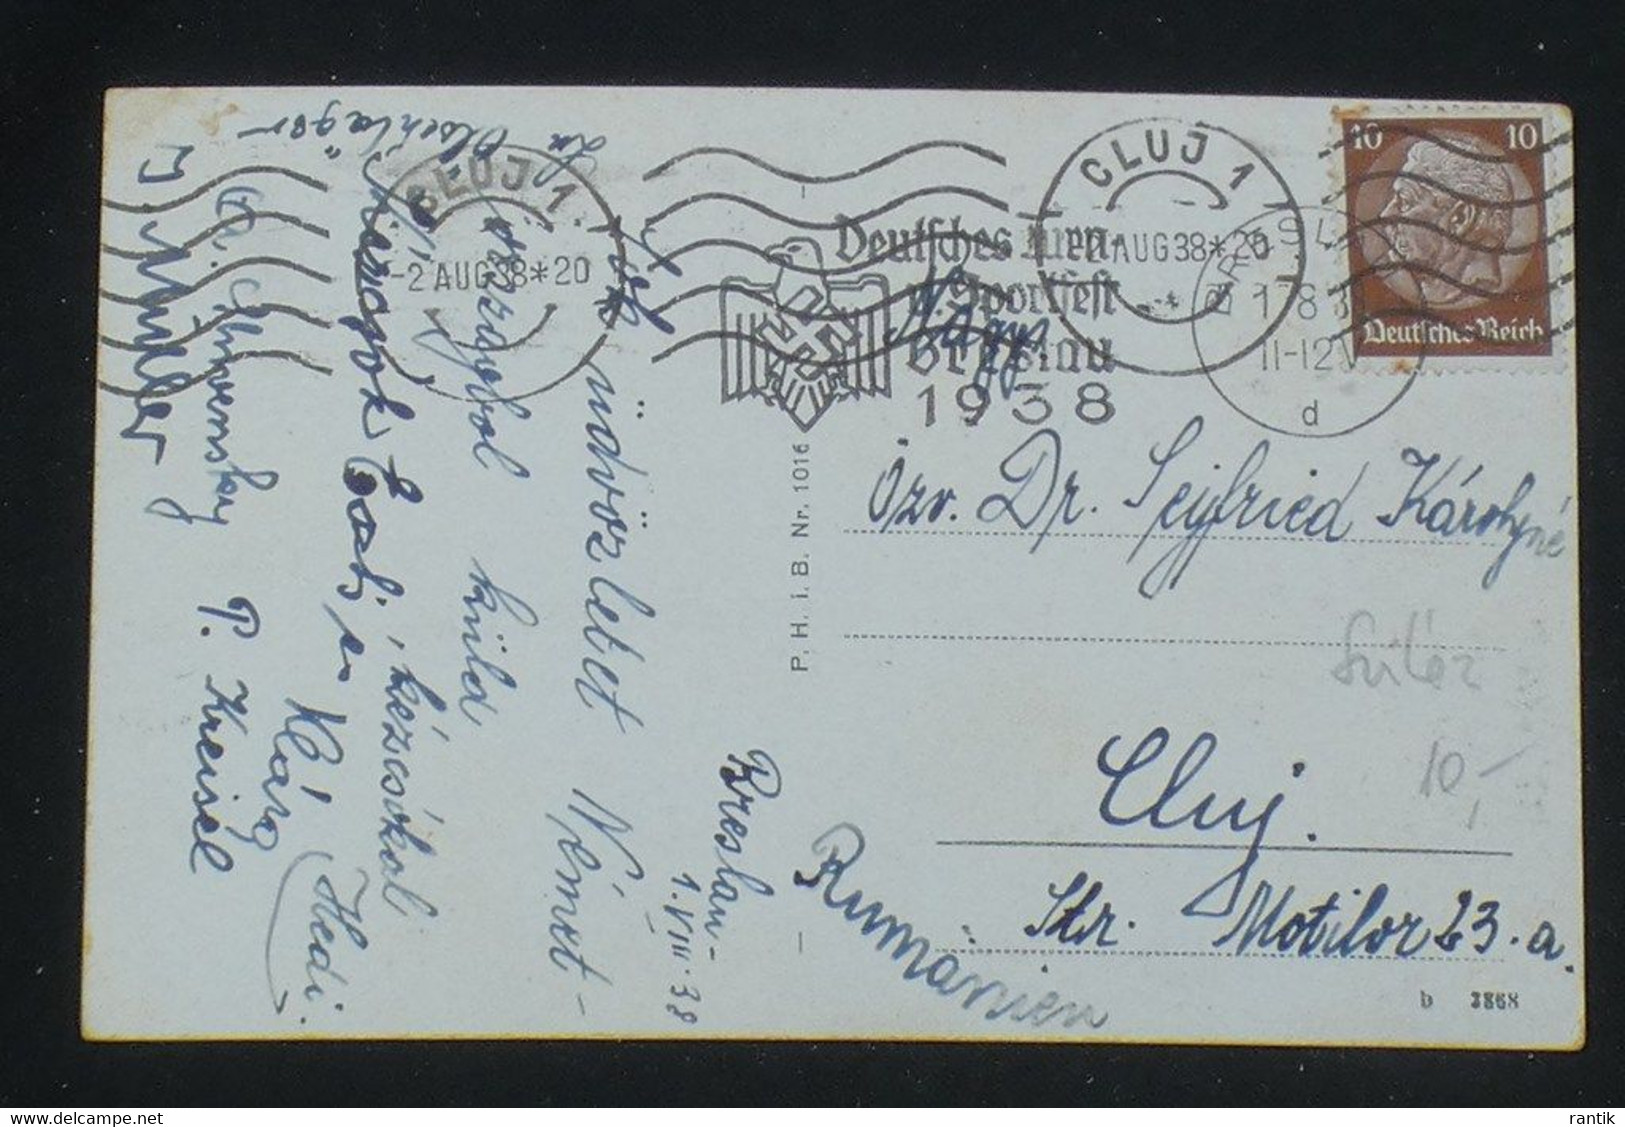 CLUJ 1
-2 AUG 38*20
Deutsches Turn-
u. Sportfest
Breslau
1938
CLUJ 1
AUG 38*20
BRESLAU
1 7 8 3
11-12 V
d
10 10
Deutsches Reich
Nagy
özv. Dr. Seyfried Károlyné
Cluj.
Str. Motilor 23. a.
Rumänien
P. H. i. B. Nr. 1016
b 3868
10,-
Breslau-
1. VIII. 38
Sok üdvözletet Német-
országból küld
Hedi.
kézcsókol
Klára
P. Kreisel
J. Müller
rantik